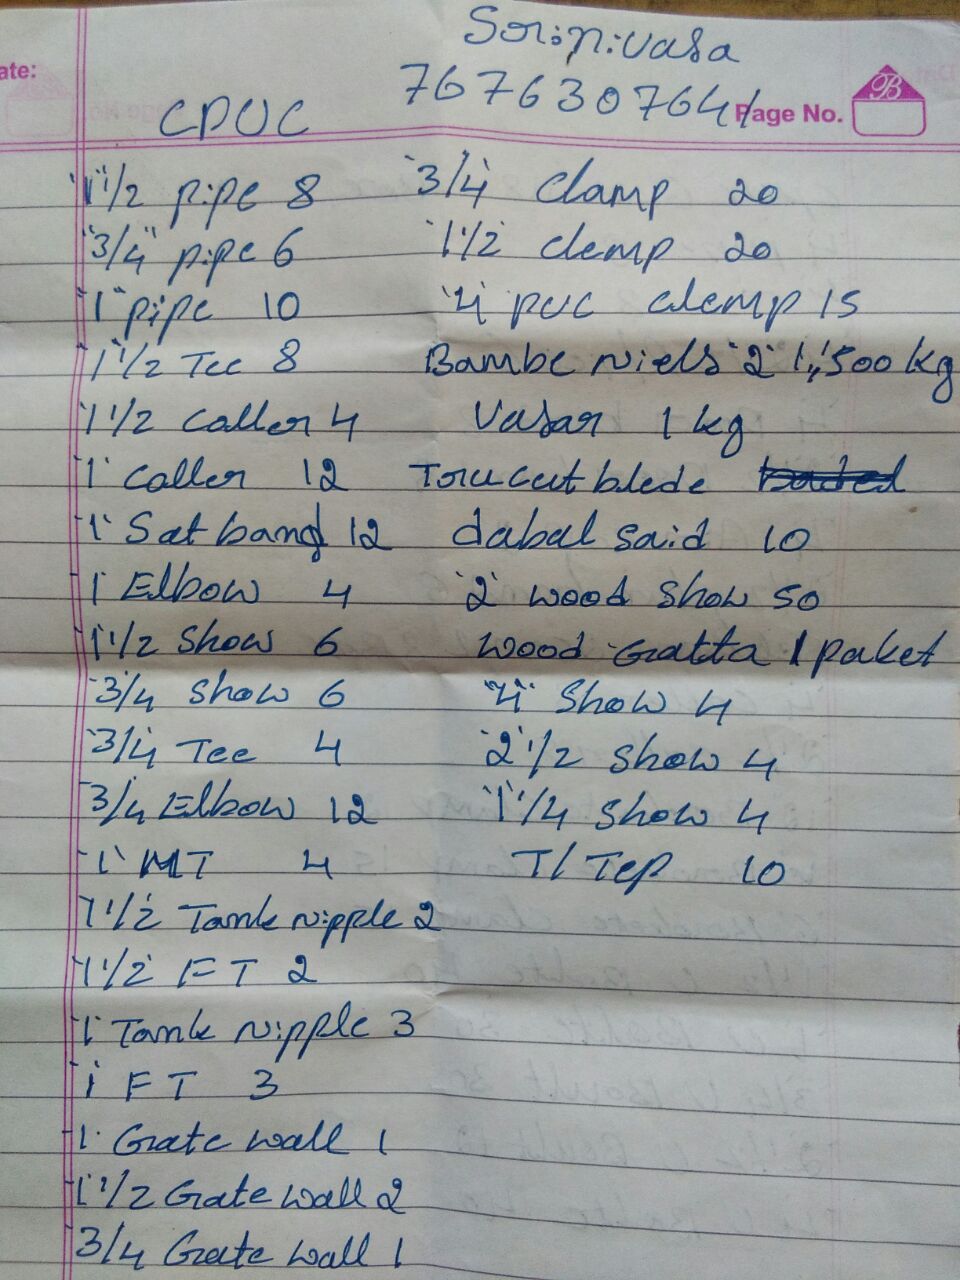 Sorinivasa
7676307641
ate:
Page No.
B
CPVC
1 1/2 pipe 8
"3/4" pipe 6
1" pipe 10
1 1/2 Tee 8
1 1/2 Caller 4
1' Caller 12
1' Sat band 12
1' Elbow 4
1 1/2 Show 6
3/4 Show 6
3/4 Tee 4
3/4 Elbow 12
1' MT 4
1 1/2 Tank nipple 2
1 1/2 FT 2
1' Tank nipple 3
1 FT 3
1' Gate wall 1
1 1/2 Gate wall 2
3/4 Gate wall 1
3/4 Clamp 20
1 1/2 clemp 20
"4 PVC clemp 15
Bambe niels "2" 1,500 kg
Vasar 1 kg
Toru cut blede
dabal said 10
"2" wood show 50
wood Gatta 1 paket
"4" Show 4
"2 1/2 Show 4
"1 1/4 Show 4
T/Tep 10